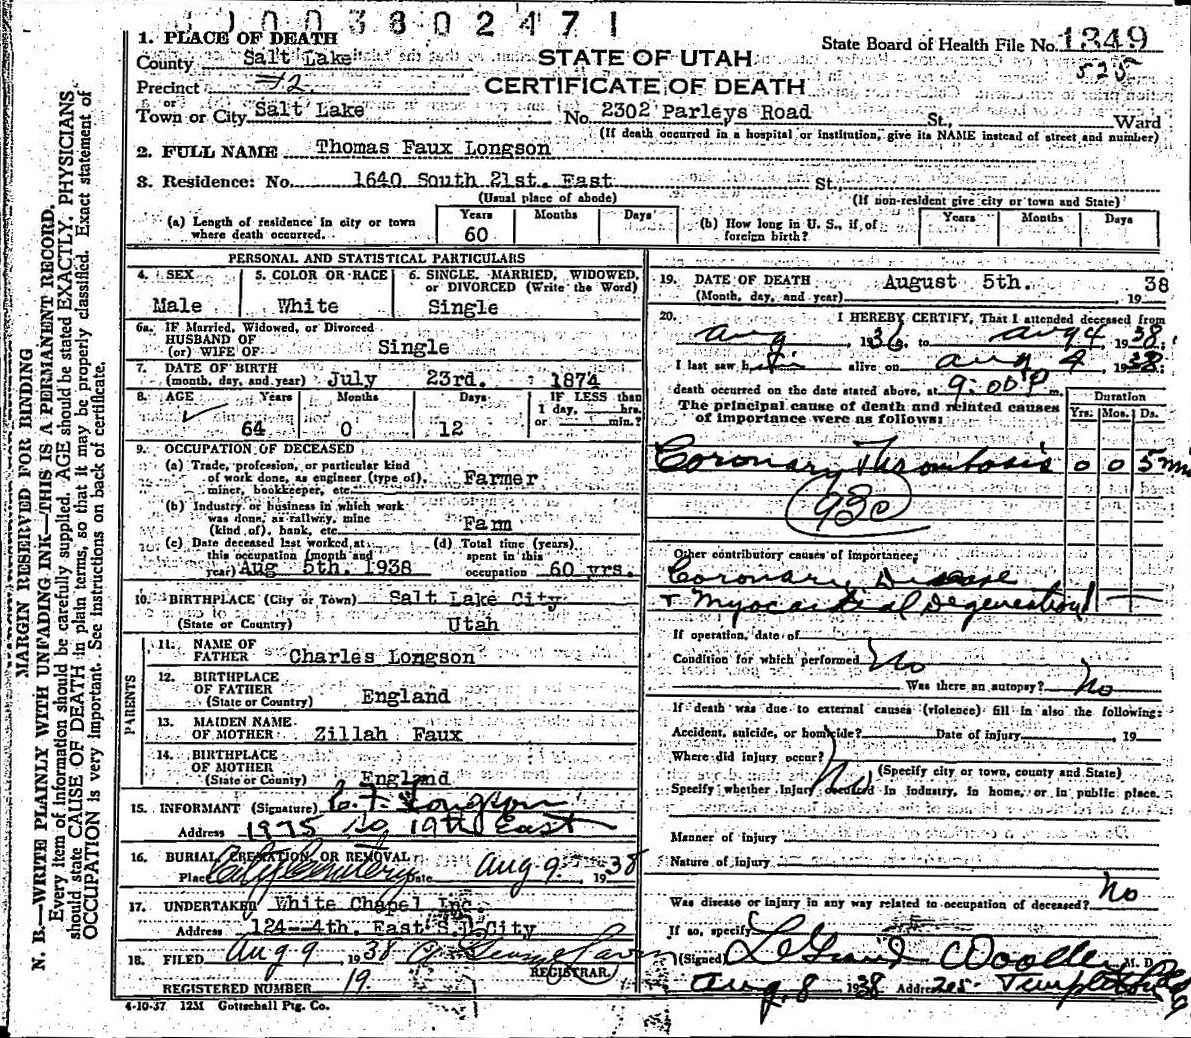 1003802471
1. PLACE OF DEATH
State Board of Health File No. 1349
County Salt Lake
STATE OF UTAH
525
Precinct #2
CERTIFICATE OF DEATH
or
Town or City Salt Lake No. 2302 Parleys Road St., Ward
(If death occurred in a hospital or institution, give its NAME instead of street and number)
2. FULL NAME Thomas Faux Longson
3. Residence: No. 1640 South 21st. East St.,
(Usual place of abode) (If non-resident give city or town and State)
(a) Length of residence in city or town where death occurred. Years 60 Months Days
(b) How long in U. S., if of foreign birth? Years Months Days
PERSONAL AND STATISTICAL PARTICULARS
4. SEX 5. COLOR OR RACE 6. SINGLE, MARRIED, WIDOWED, or DIVORCED (Write the Word)
Male White Single
6a. IF Married, Widowed, or Divorced
HUSBAND OF
(or) WIFE OF Single
7. DATE OF BIRTH
(month, day, and year) July 23rd. 1874
8. AGE Years Months Days IF LESS than 1 day, hrs. or min.?
64 0 12
9. OCCUPATION OF DECEASED
(a) Trade, profession, or particular kind
of work done, as engineer (type of), Farmer
miner, bookkeeper, etc.
(b) Industry or business in which work
was done, as railwry, mine
(kind of), bank, etc. Farm
(c) Date deceased last worked at
this occupation (month and
year) Aug 5th. 1938
(d) Total time (years)
spent in this
occupation 60 yrs.
10. BIRTHPLACE (City or Town) Salt Lake City
(State or Country) Utah
PARENTS
11. NAME OF
FATHER Charles Longson
12. BIRTHPLACE
OF FATHER England
(State or County)
13. MAIDEN NAME
OF MOTHER Zillah Faux
14. BIRTHPLACE
OF MOTHER
(State or County) England
15. INFORMANT (Signature) C. F. Longson
Address 1975 So 19th East
16. BURIAL, CREMATION, OR REMOVAL
Place City Cemetery Date Aug 9, 1938
17. UNDERTAKER White Chapel Inc.
Address 124--4th. East S.L. City
18. FILED Aug 9 1938
REGISTRAR.
REGISTERED NUMBER 19.
4-10-37 12M Gottschall Ptg. Co.
19. DATE OF DEATH August 5th. 38
(Month, day, and year) , 19
20. I HEREBY CERTIFY, That I attended deceased from
Aug 1936, to Aug 4, 1938;
I last saw him alive on Aug 4 1938;
death occurred on the date stated above, at 9:00 P m.
The principal cause of death and related causes
of importance were as follows:
Duration
Yrs. Mos. Ds.
Coronary Thrombosis 0 0 5 min
93c
Other contributory causes of importance:
Coronary Disease
+ Myocardial Degeneration
If operation, date of
Condition for which performed No
Was there an autopsy? No
If death was due to external causes (violence) fill in also the following:
Accident, suicide, or homicide? Date of injury , 19
Where did injury occur? No
(Specify city or town, county and State)
Specify whether injury occurred in industry, in home, or in public place.
Manner of injury
Nature of injury
Was disease or injury in any way related to occupation of deceased? No
If so, specify
(Signed) LeGrand Woolley M. D.
Aug. 8 1938 Address
MARGIN RESERVED FOR BINDING
N. B.—WRITE PLAINLY WITH UNFADING INK—THIS IS A PERMANENT RECORD.
Every item of information should be carefully supplied. AGE should be stated EXACTLY. PHYSICIANS
should state CAUSE OF DEATH in plain terms, so that it may be properly classified. Exact statement of
OCCUPATION is very important. See instructions on back of certificate.